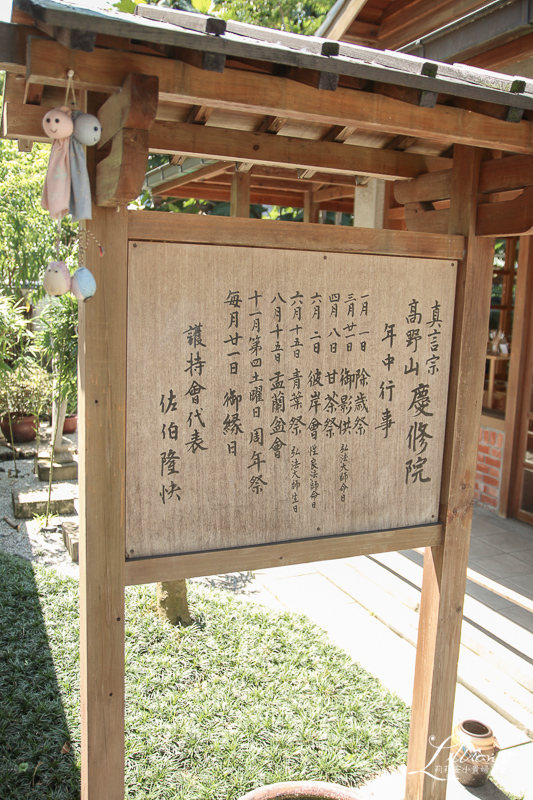 真言宗
高野山 慶修院
年中行事
一月一日 除歳祭
三月廿一日 御影供 弘法大師命日
四月八日 甘茶祭
六月二日 彼岸會 性泉法師命日
六月十五日 青葉祭 弘法大師生日
八月十五日 盂蘭盆會
十一月第四土曜日 周年祭
每月廿一日 御縁日
護持會代表
佐伯隆快
Lillian